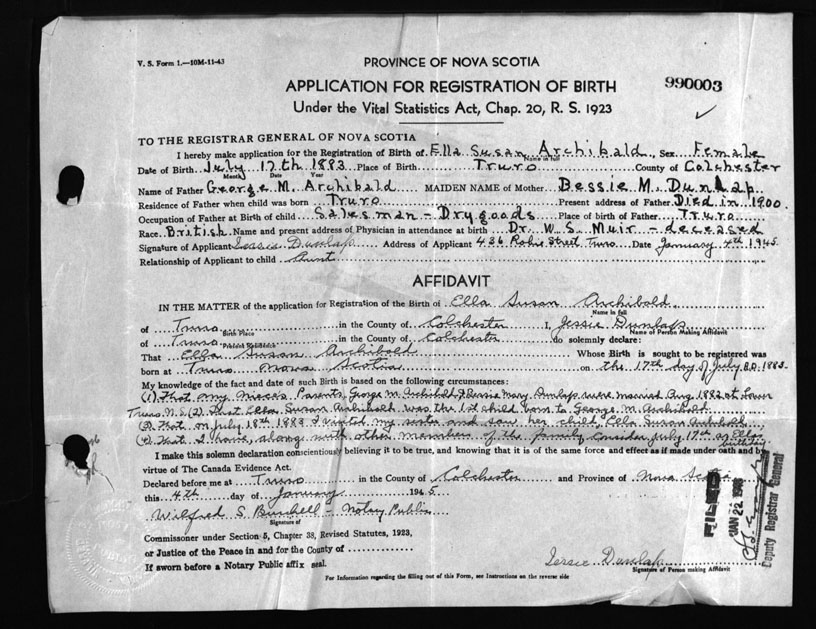 V. S. Form 1.—10M-11-43
PROVINCE OF NOVA SCOTIA
APPLICATION FOR REGISTRATION OF BIRTH
990003
Under the Vital Statistics Act, Chap. 20, R. S. 1923
TO THE REGISTRAR GENERAL OF NOVA SCOTIA
I hereby make application for the Registration of Birth of Ella Susan Archibald, Sex Female
Name in full
Date of Birth July 17th 1883 Place of Birth Truro County of Colchester
Month Date Year
Name of Father George M. Archibald MAIDEN NAME of Mother Bessie M. Dunlap
Residence of Father when child was born Truro Present address of Father Died in 1900.
Occupation of Father at Birth of child Salesman - Drygoods Place of birth of Father Truro
Race British Name and present address of Physician in attendance at birth Dr. W. S. Muir - deceased
Signature of Applicant Jessie Dunlap Address of Applicant 436 Robie Street Truro Date January 4th 1945
Relationship of Applicant to child Aunt
AFFIDAVIT
IN THE MATTER of the application for Registration of the Birth of Ella Susan Archibald
Name in full
of Truro in the County of Colchester I, Jessie Dunlap
Birth Place Name of Person Making Affidavit
of Truro in the County of Colchester do solemnly declare:
Present Residence
That Ella Susan Archibald Whose Birth is sought to be registered was
born at Truro Nova Scotia on the 17th day of July A.D. 1883.
My knowledge of the fact and date of such Birth is based on the following circumstances:
(1) That my niece's Parents, George M. Archibald & Bessie Mary Dunlap were married Aug. 1882 at Lower
Truro N.S. (2) That Ella Susan Archibald was the 1st child born to George M. Archibald.
(3) That on July 18th 1883 I visited my sister and saw her child, Ella Susan Archibald.
(4) That I have, along with other members of the family consider July 17th as Ella's
birthday
I make this solemn declaration conscientiously believing it to be true, and knowing that it is of the same force and effect as if made under oath and by
virtue of The Canada Evidence Act.
Declared before me at Truro in the County of Colchester and Province of Nova Scotia
this 4th day of January 1945
Wilfred S. - Notary Public
Signature of
Commissioner under Section 5, Chapter 38, Revised Statutes, 1923,
or Justice of the Peace in and for the County of
If sworn before a Notary Public affix seal.
Jessie Dunlap
Signature of Person making Affidavit
For Information regarding the filling out of this Form, see Instructions on the reverse side
FILED
JAN 22
Deputy Registrar General